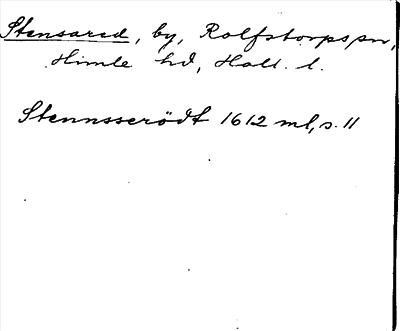 Stensared, by, Rolfstorps sn,
Himle hd, Hall. l.
Stennsserödt 1612 ml, s. 11